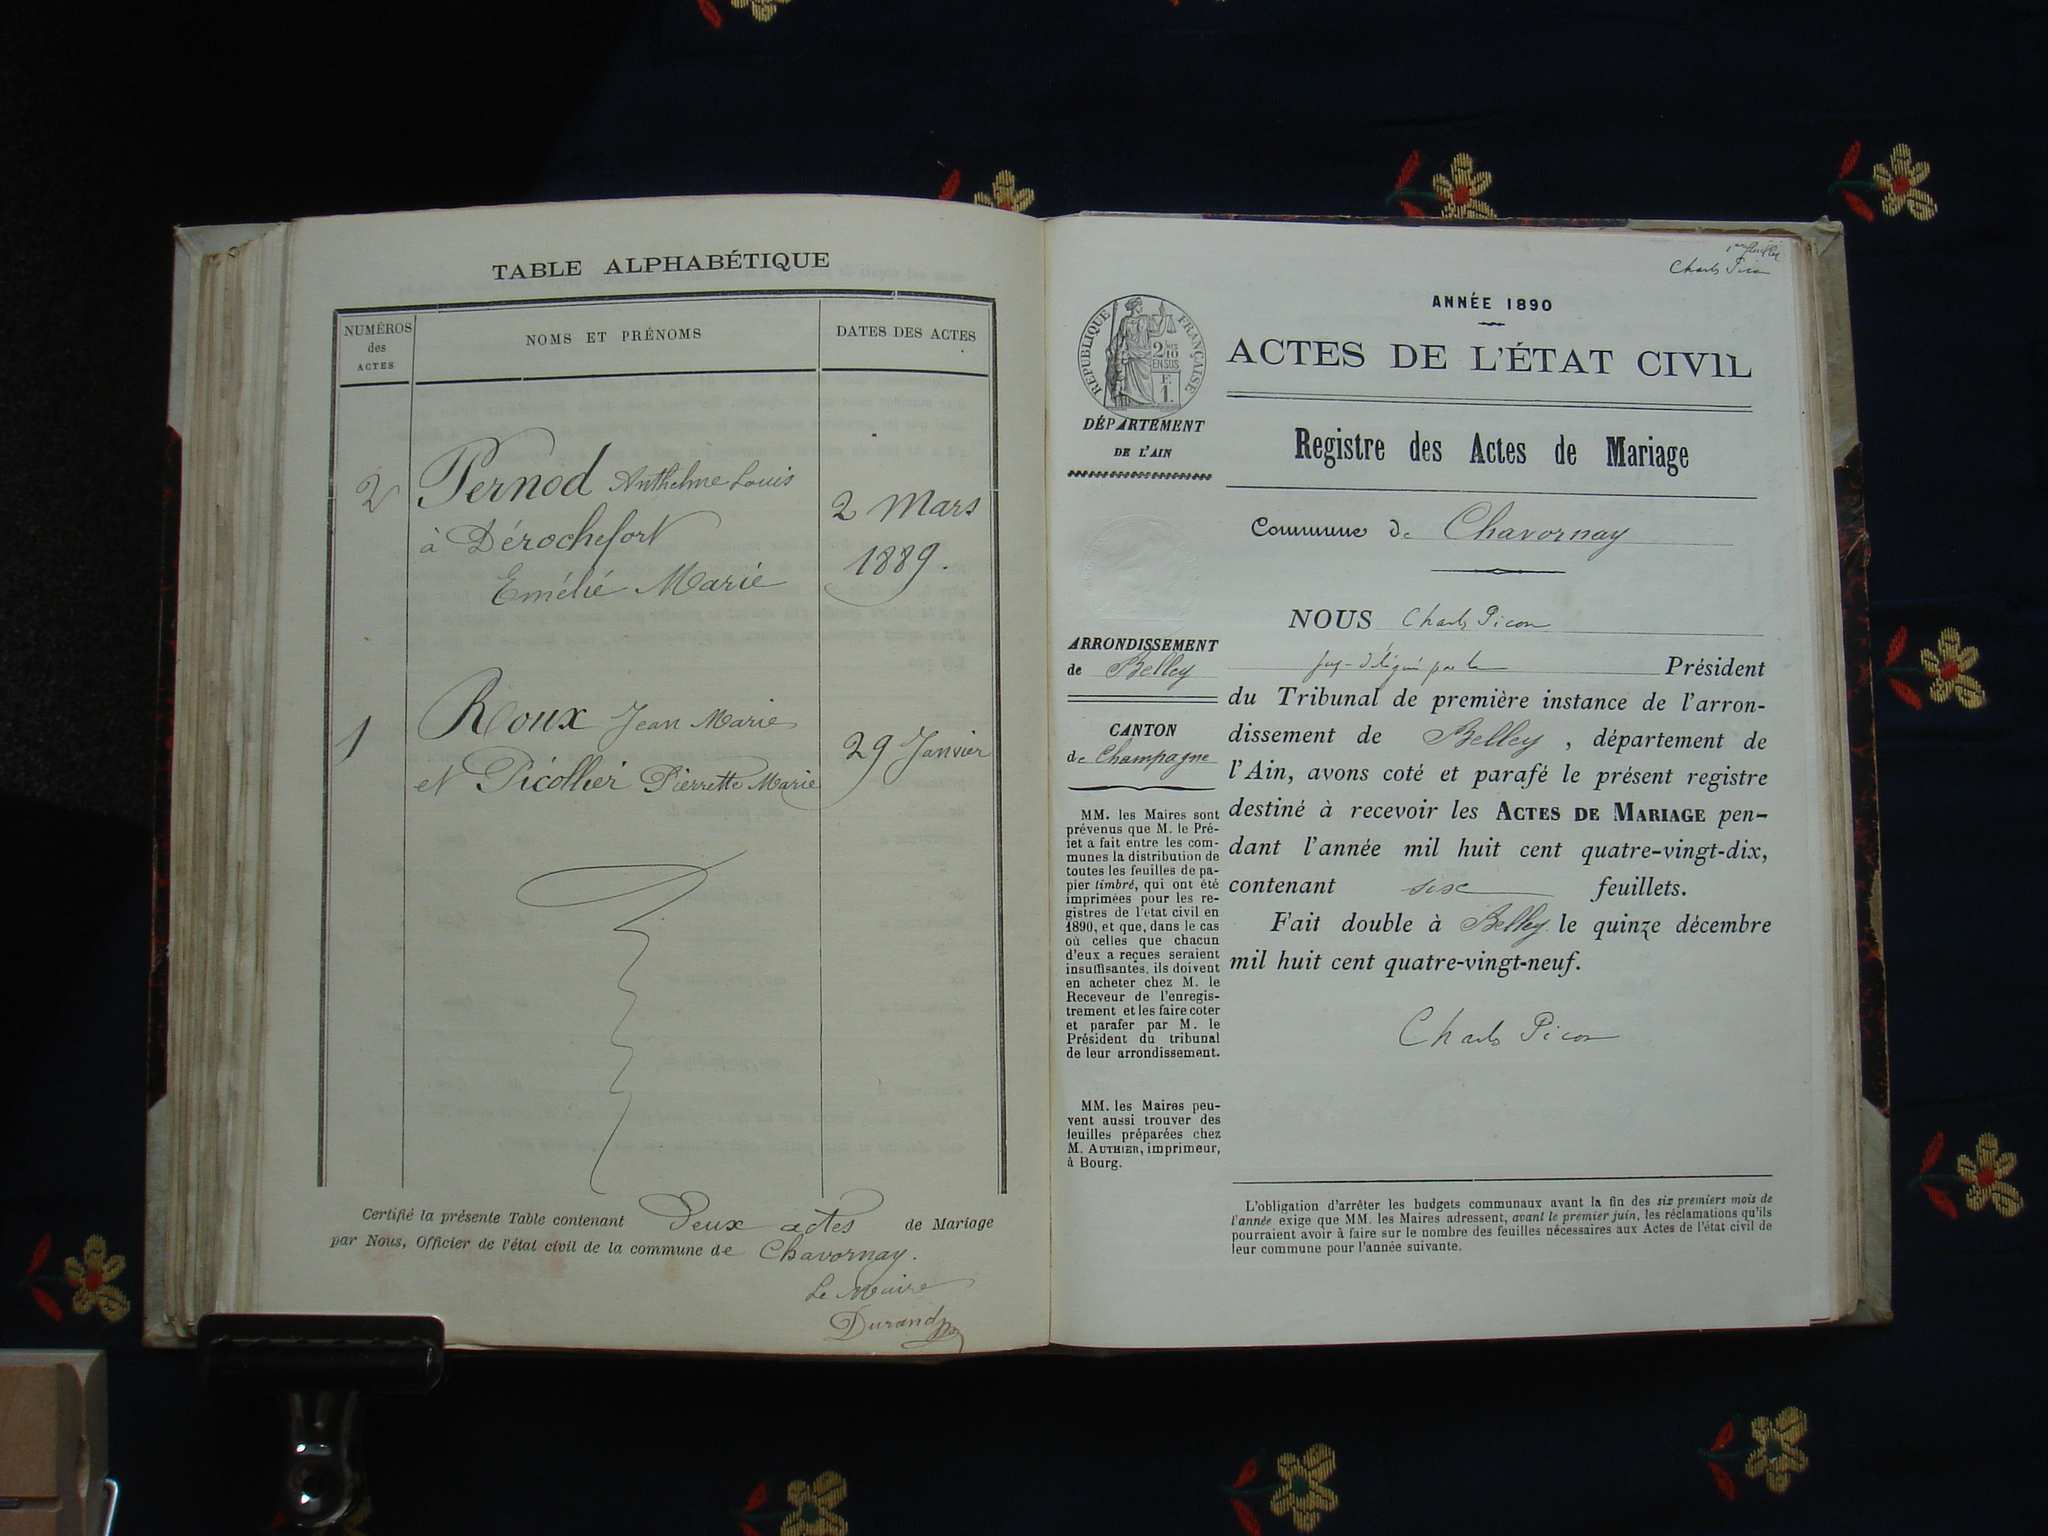 TABLE ALPHABÉTIQUE
NUMÉROS
des
ACTES
NOMS ET PRÉNOMS
DATES DES ACTES
2
Pernod Anthelme Louis
à Dérochefort
Emélie Marie
2 Mars
1889.
1
Roux Jean Marie
et Picollier Pierrette Marie
29 Janvier
Certifié la présente Table contenant Deux actes de Mariage
par Nous, Officier de l'état civil de la commune de Chavornay.
Le Maire
Durand
Charles Picon
RÉPUBLIQUE FRANÇAISE
2/10
EN SUS
F.
1.
DÉPARTEMENT
DE L'AIN
ARRONDISSEMENT
de Belley
CANTON
de Champagne
MM. les Maires sont
prévenus que M. le Pré-
fet a fait entre les com-
munes la distribution de
toutes les feuilles de pa-
pier timbré, qui ont été
imprimées pour les re-
gistres de l'état civil en
1890, et que, dans le cas
où celles que chacun
d'eux a reçues seraient
insuffisantes, ils doivent
en acheter chez M. le
Receveur de l'enregis-
trement et les faire coter
et parafer par M. le
Président du tribunal
de leur arrondissement.
MM. les Maires peu-
vent aussi trouver des
feuilles préparées chez
M. AUTHIER, imprimeur,
à Bourg.
ANNÉE 1890
ACTES DE L'ÉTAT CIVIL
Registre des Actes de Mariage
Commune de Chavornay
NOUS Charles Picon
juge délégué par le Président
du Tribunal de première instance de l'arron-
dissement de Belley, département de
l'Ain, avons coté et parafé le présent registre
destiné à recevoir les ACTES DE MARIAGE pen-
dant l'année mil huit cent quatre-vingt-dix,
contenant six feuillets.
Fait double à Belley le quinze décembre
mil huit cent quatre-vingt-neuf.
Charles Picon
L'obligation d'arrêter les budgets communaux avant la fin des six premiers mois de
l'année exige que MM. les Maires adressent, avant le premier juin, les réclamations qu'ils
pourraient avoir à faire sur le nombre des feuilles nécessaires aux Actes de l'état civil de
leur commune pour l'année suivante.